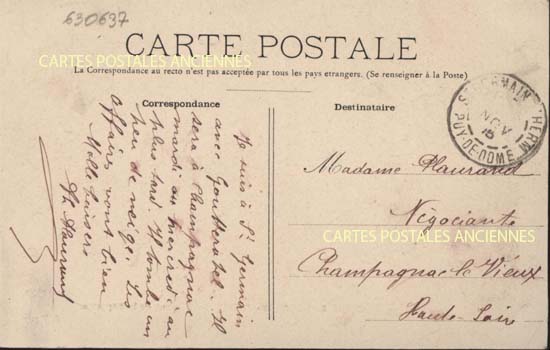 630637
CARTES POSTALES ANCIENNES
CARTE POSTALE
La Correspondance au recto n'est pas acceptée par tous les pays etrangers. (Se renseigner à la Poste)
Correspondance
Je suis à St Germain
avec Il
sera à Champagnac
mardi ou mercredi au
plus tard. Il tombe un
peu de neige. Les
affaires vont bien
Mille baisers
Destinataire
ST GERMAIN L'HERM
NOV
PUY-DE-DOME
Madame Plaurand
Négociante
CARTES POSTALES ANCIENNES
Champagnac le Vieux
Haute-Loire